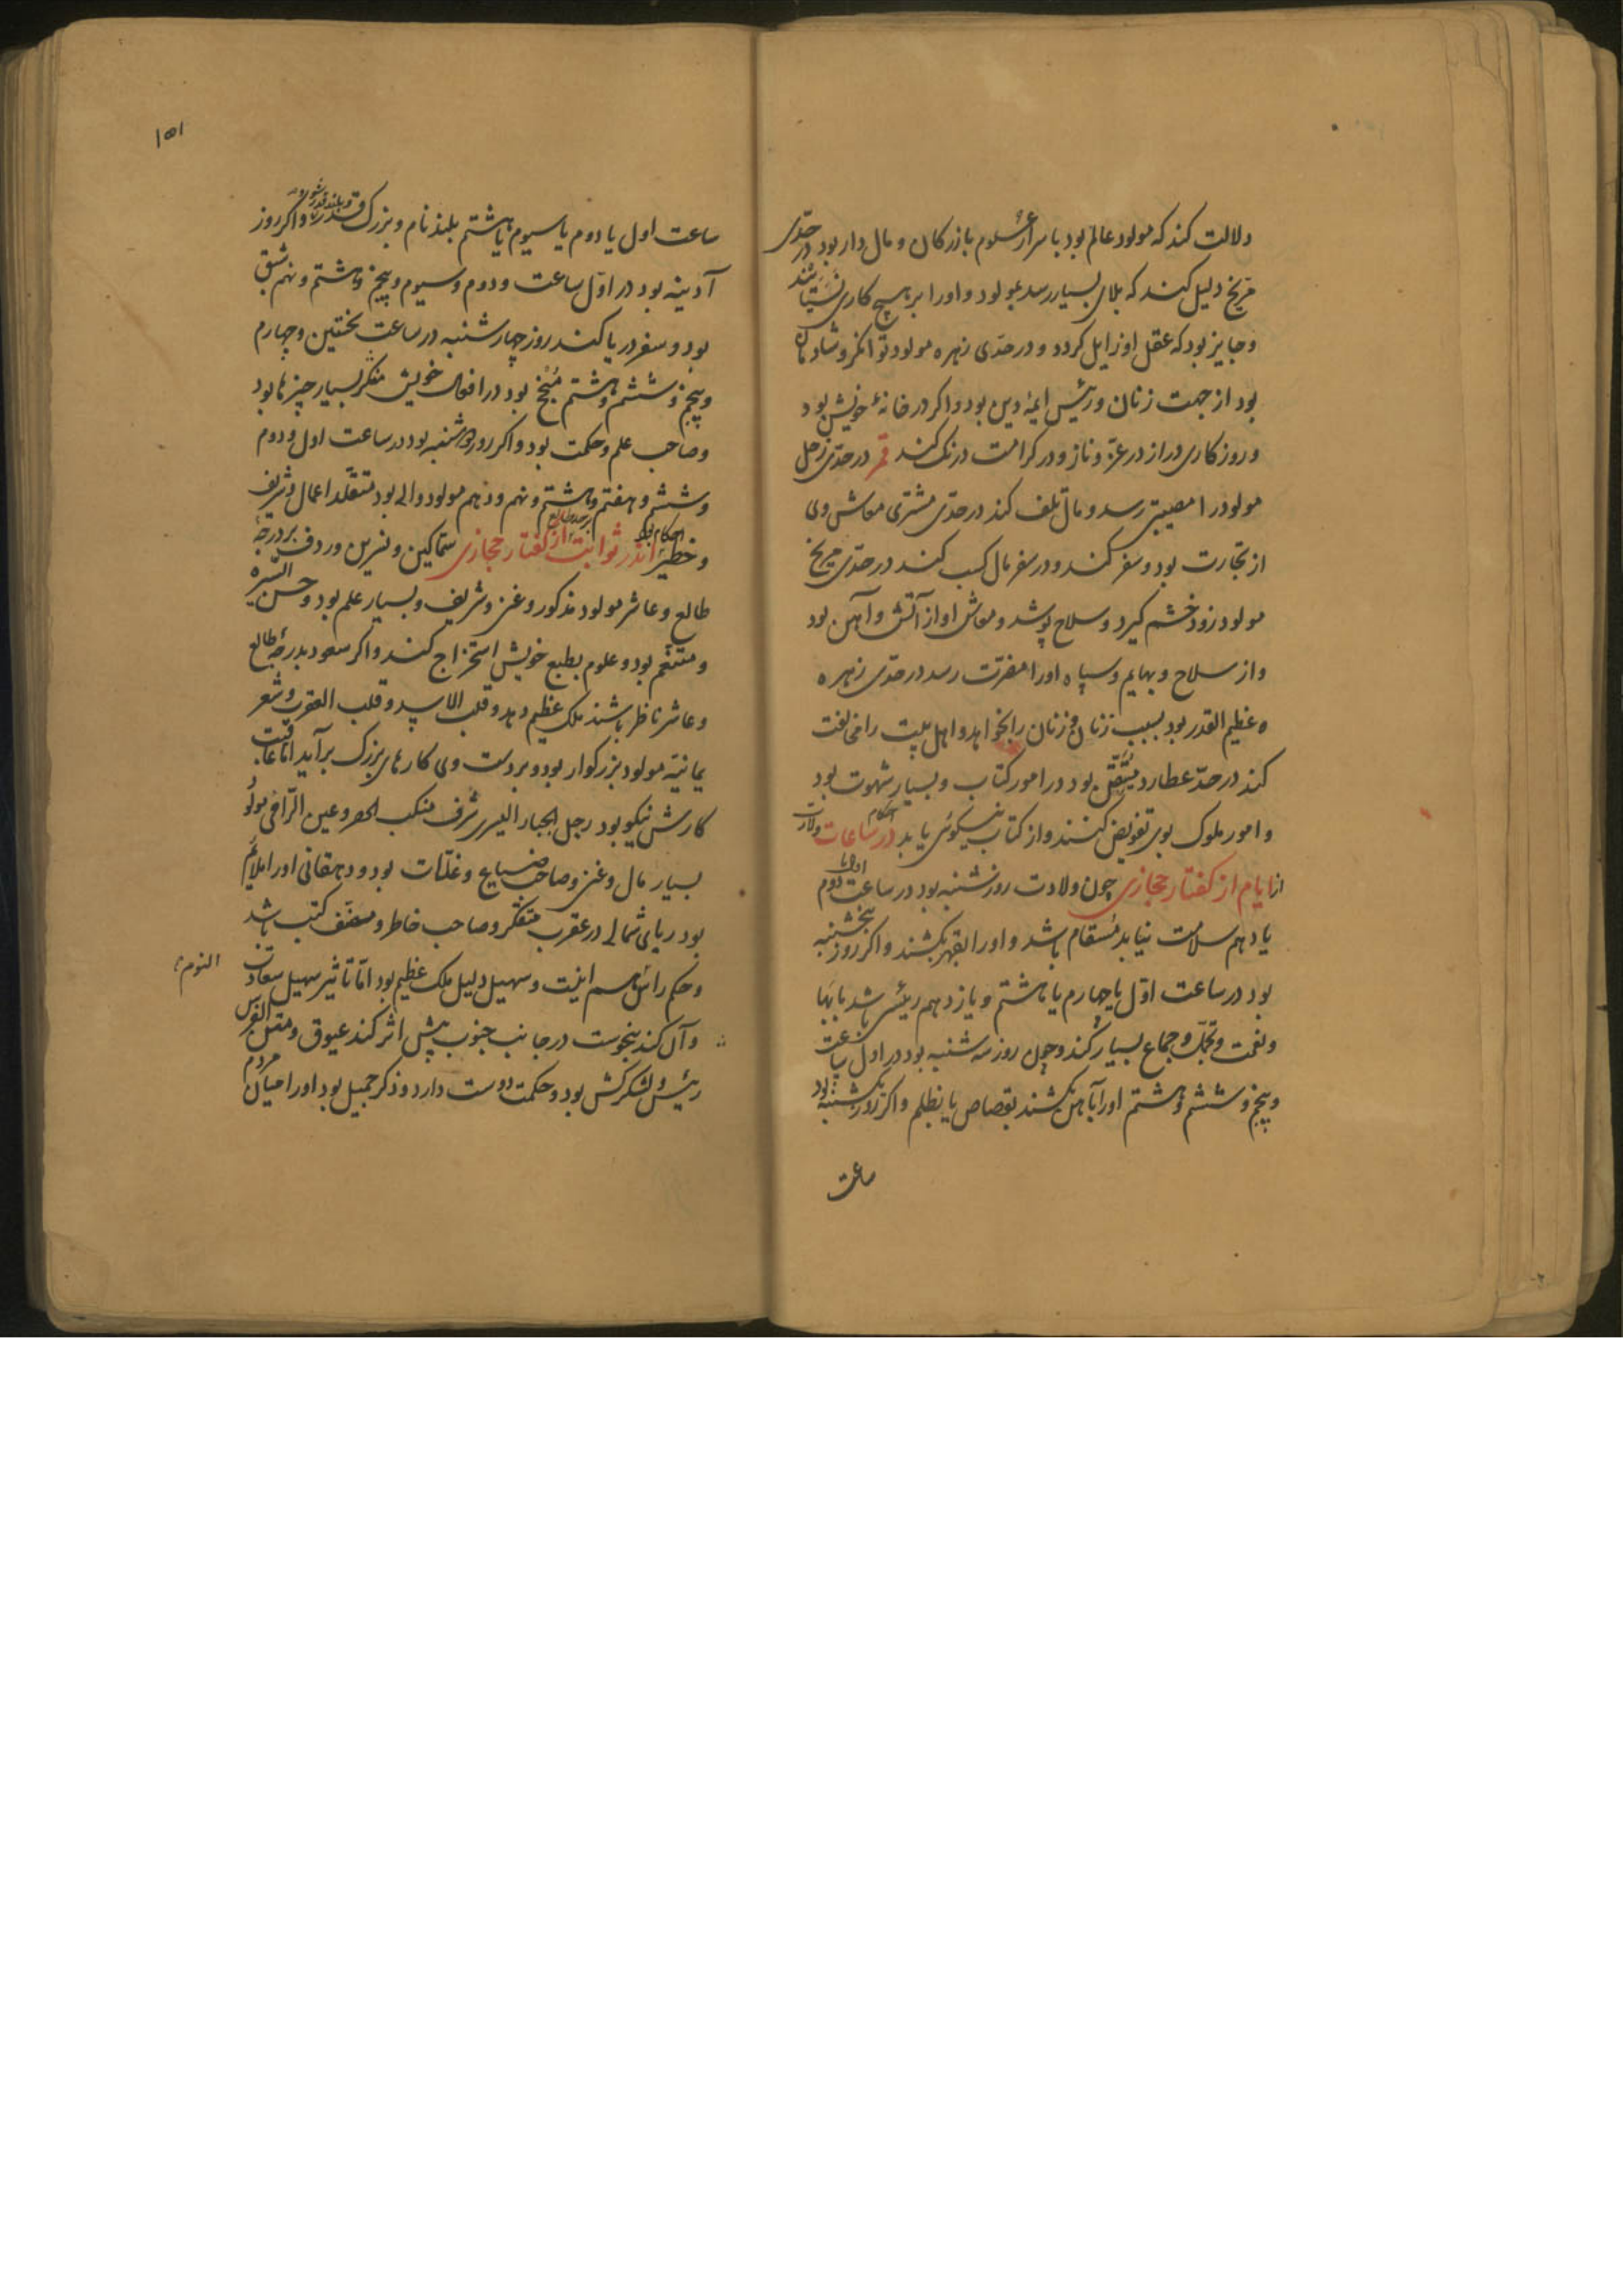 دلالت کند که مولود عالم بود باسرار علوم بازرکان و مال دار بود در حدّی
مرّیخ دلیل کند که بلای بسیار رسد بمولود و اورا بر هیچ کاری
و جایز بود که عقل او زایل کردد و در حدّی زهره مولود توانکر و شادمان
بود از جهت زنان و رئیس ایمهٔ دین بود و اکر در خانهٔ خویش بود
و روزکاری دراز در عزّ و ناز و در کرامت درنک کند قمر در حدّی زحل
مولود را مصیبتی رسد و مال تلف کند در حدّی مشتری معاش وی
از تجارت بود و سفر کند و در سفر مال کسب کند در حدّی مریخ
مولود زود خشم کیرد و سلاح پوشد و معاش او از آتش و آهن بود
و از سلاح و بهایم و سپاه اورا مضرّت رسد در حدّی زهره
عظیم القدر بود بسبب زنان و زنان را بخواهد و اهل بیت را مخالفت
کند در حدّ عطارد بود در امور کتاب و بسیار شهوت بود
و امور ملوک بوی تفویض کنند و از کتاب نیکوئی یابد احکام در ساعات ولادت
از ایام از کفتار حجازی چون ولادت روز شنبه بود در ساعت اول یا دوم
یا دهم سلامت نیابد مسقام باشد و اورا بقهر بکشند و اکر روز پنجشنبه
بود در ساعت اوّل یا چهارم یا هشتم و یازدهم رئیسی باشد بابها
و نعمت و تجمّل و جماع بسیار کند و چون روز سه شنبه بود در اول ساعت
و پنجم و ششم و هشتم اورا بآهن بکشند بقصاص یا بظلم و اکر روز یکشنبه بود
ساعت
۱۵۱
ساعت اول یا دوم یا سیوم یا هشتم بلند نام و بزرک قدر و اکر روز
آدینه بود در اوّل ساعت و دوم و سیوم و پنجم و هشتم و نهم شبق
بود و سفر دریا کند روز چهارشنبه در ساعت نخستین و چهارم
و پنجم و ششم و هشتم منجّح بود در افعال خویش متفکر بسیار چیزها بود
و صاحب علم و حکمت بود و اکر روز دوشنبه بود در ساعت اول و دوم
و ششم و هفتم و هشتم و نهم و دهم مولود والی بود متقلّد اعمال شریف
و خطیر احکام اندر ثوابت از کفتار حجازی سماکین و نسرین و ردف بر درجهٔ
طالع و عاشر مولود مذکور و غنی و شریف و بسیار علم بود و حسن السیره
و متنعّم بود و علوم بطبع خویش استخراج کند و اکر سعود بدرجهٔ طالع
و عاشر ناظر باشند ملک عظیم دهد و قلب الاسد و قلب العقرب و شعر
یمانیّه مولود بزرکوار بود و بر دست وی کارهای بزرک برآید امّا عاقبت
کارش نیکو بود رجل الجبار الیسری شرف منکب و عین الرّامی مولود
بسیار مال و غنی و صاحب ضیاع و غلّات بود و دهقانی اورا ملایم
بود ربای شمالی در عقرب متفکر و صاحب خاطر و مصنّف کتب باشد
و حکم راس هم اینست و سهیل دلیل ملک عظیم بود امّا تاثیر سهیل سعادت
و آن کند بنحوست در جانب جنوب بیش اثر کند عیوق و الفرس
رئیس و لشکرکش بود و حکمت دوست دارد و ذکر جمیل بود اورا میان مردم